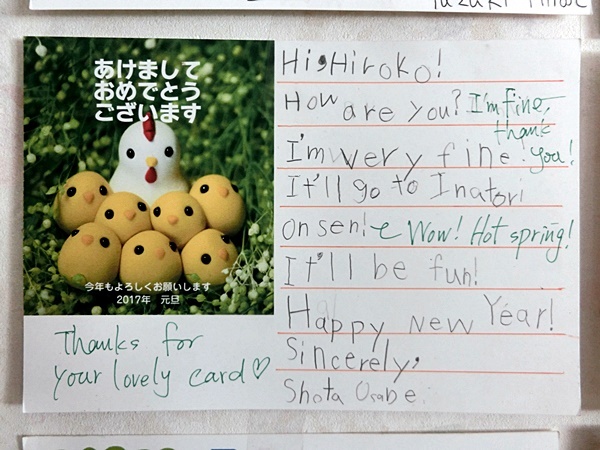 Yuzuki
あけまして
おめでとう
ございます
今年もよろしくお願いします
2017年 元旦
Thanks for
your lovely card♡
Hi, Hiroko!
How are you? I'm fine,
thank
you!
I'm very fine.
It'll go to Inatori
onsen! Wow! Hot spring!
It'll be fun!
Happy New Year!
Sincerely,
Shota Osabe